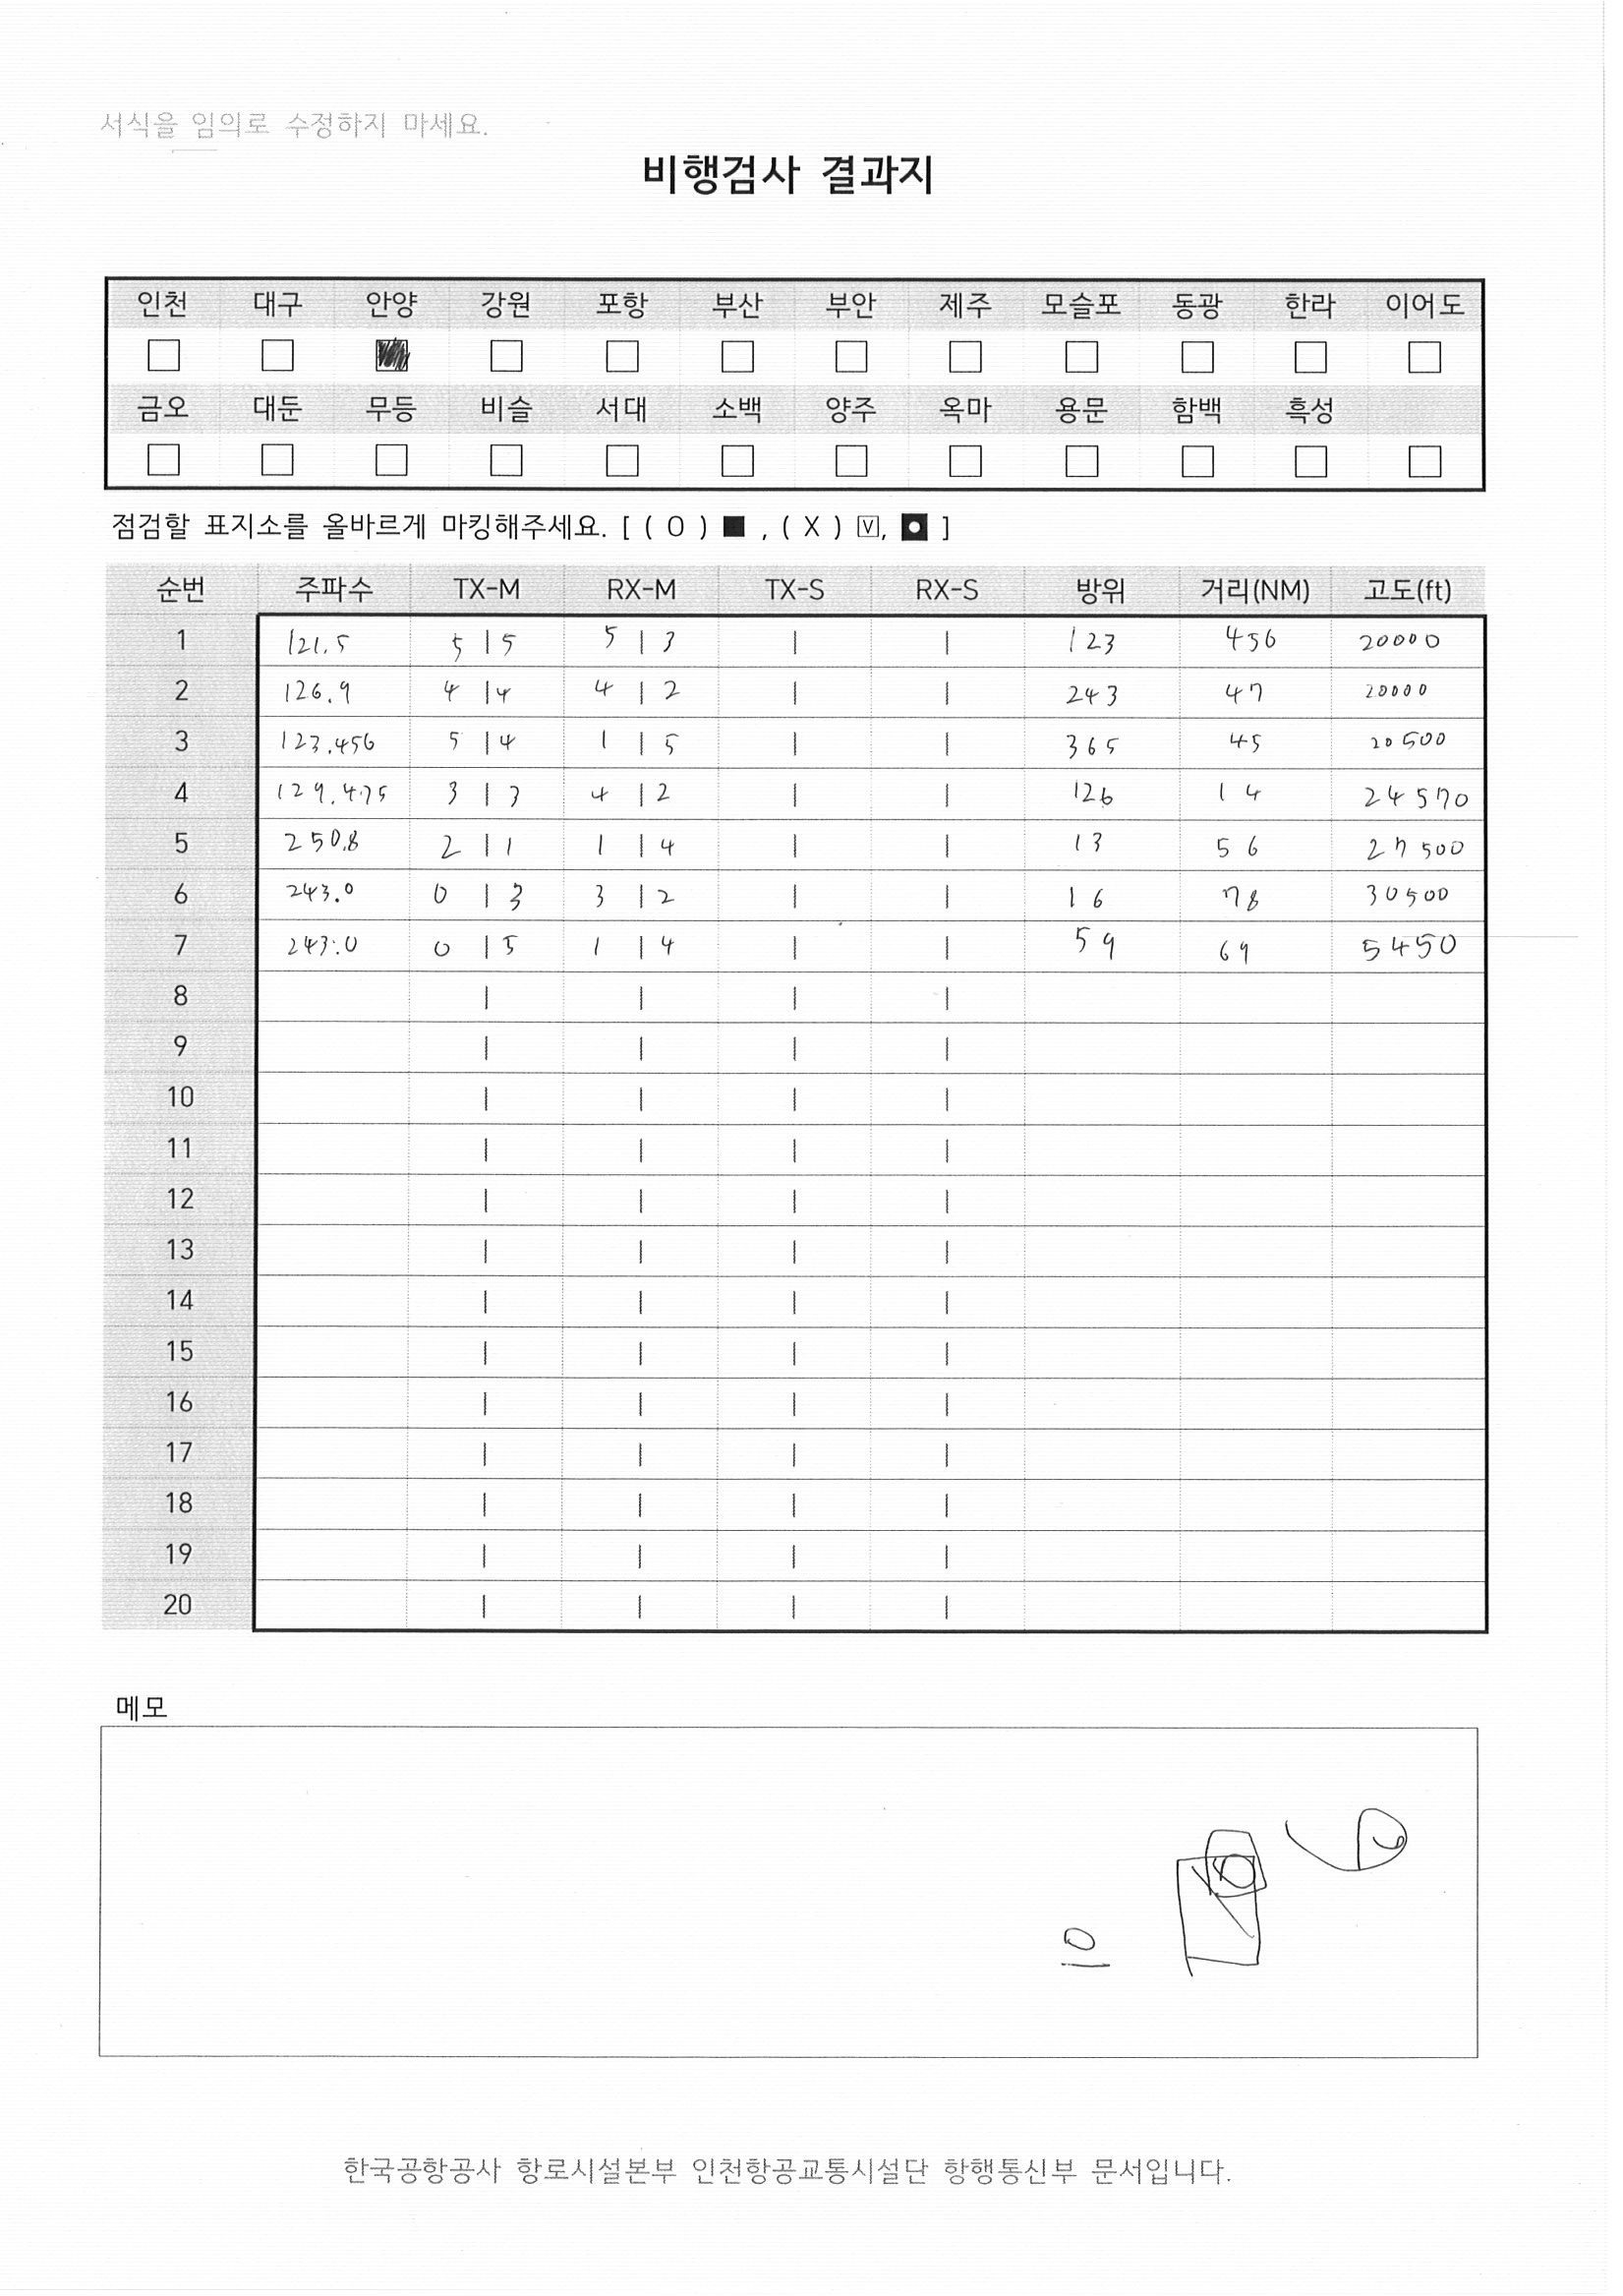 서식을 임의로 수정하지 마세요.
비행검사 결과지
인천 대구 안양 강원 포항 부산 부안 제주 모슬포 동광 한라 이어도
금오 대둔 무등 비슬 서대 소백 양주 옥마 용문 함백 흑성
점검할 표지소를 올바르게 마킹해주세요. [ ( O ) ■ , ( X ) ☑, ◘ ]
순번 주파수 TX-M RX-M TX-S RX-S 방위 거리(NM) 고도(ft)
1 121.5 5 | 5 5 | 3 | | 123 456 20000
2 126.9 4 | 4 4 | 2 | | 243 47 20000
3 123.456 5 | 4 1 | 5 | | 365 45 20500
4 129.475 3 | 3 4 | 2 | | 126 14 24570
5 250.8 2 | 1 1 | 4 | | 13 56 27500
6 243.0 0 | 3 3 | 2 | | 16 78 30500
7 243.0 0 | 5 1 | 4 | | 59 69 5450
8 | | | |
9 | | | |
10 | | | |
11 | | | |
12 | | | |
13 | | | |
14 | | | |
15 | | | |
16 | | | |
17 | | | |
18 | | | |
19 | | | |
20 | | | |
메모
한국공항공사 항로시설본부 인천항공교통시설단 항행통신부 문서입니다.